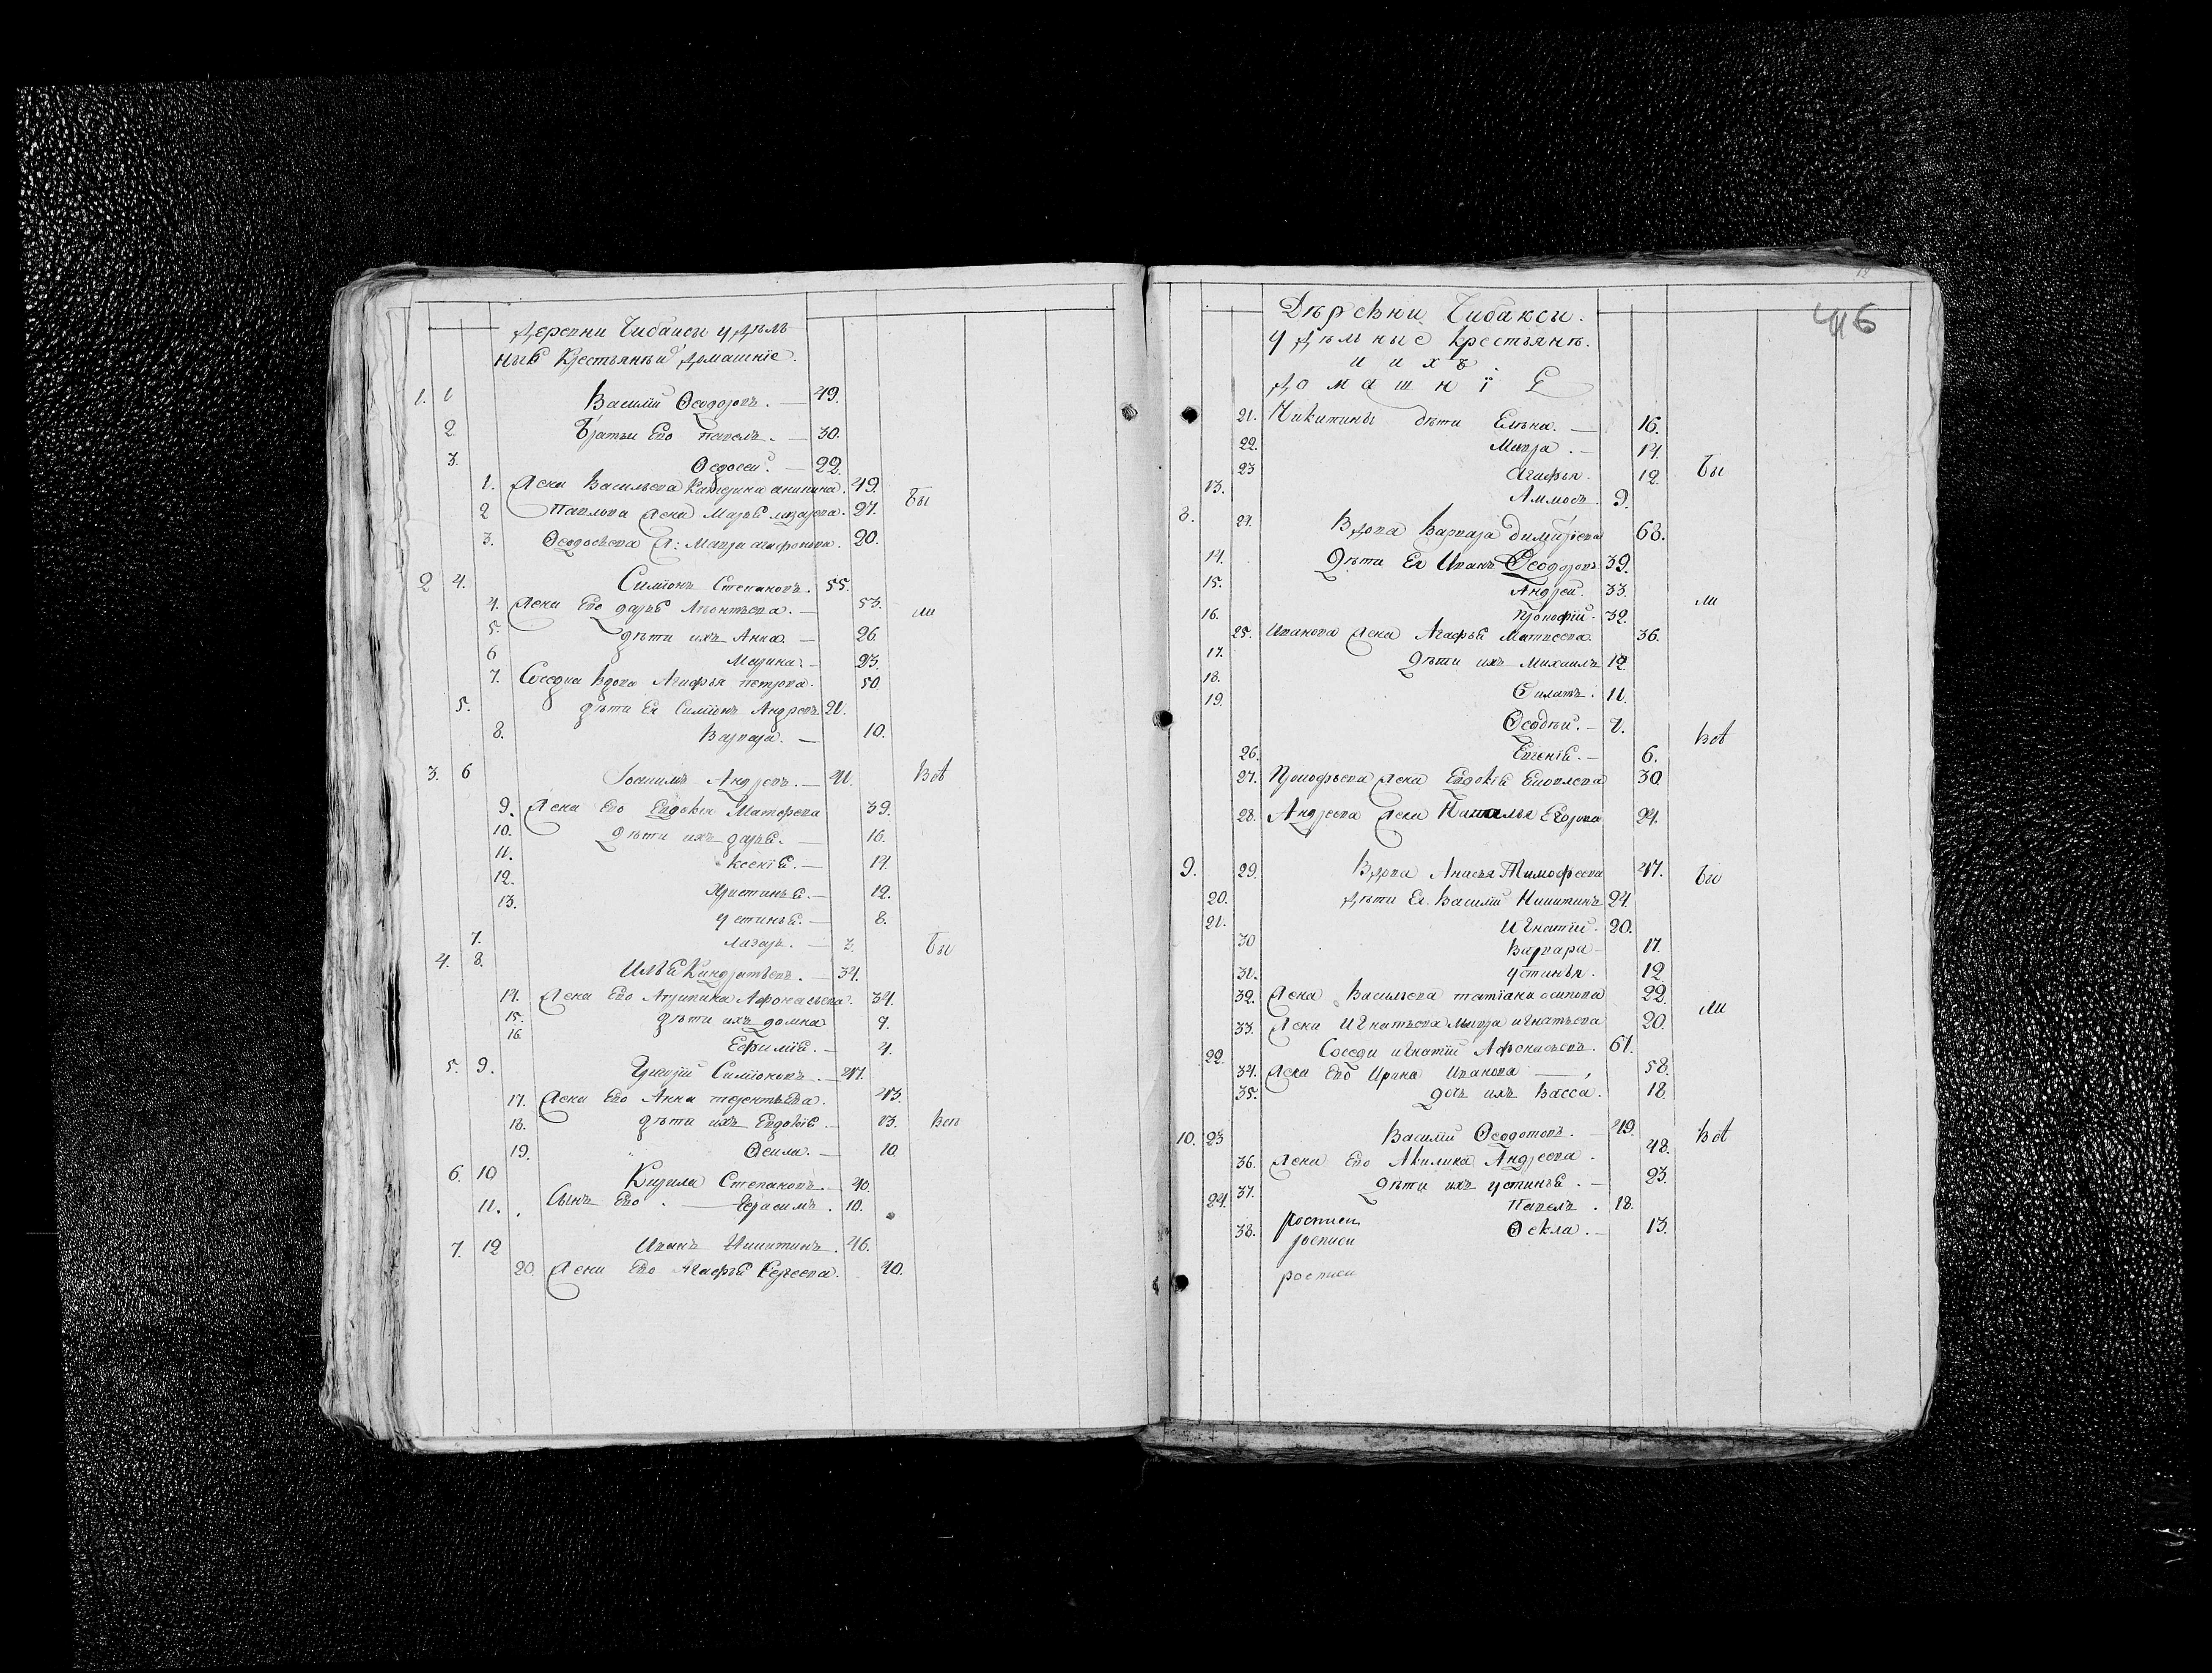 деревни Чибаксы удѣль
ные Крестьянеи домашніе.
1. 1 Василій Ѳеодоровъ. — 49.
2. братья Его павелъ. — 30.
3. Ѳедосеи. — 22.
1. жена Васильева Катерина 49. бы
2 Павлова жена Марья 27.
3. Ѳеодосьева ж: Мавра агафонова. 20.
2 4. Симіонъ Степановъ. 55.
4. жена Его дарья Леонтьева. — 53. ли
5. дѣти ихъ Анна. — 26
6 Марина. — 23.
7. Соседка вдова Агафья петрова. 50
5. дѣти Ея Симіонъ Андреевъ. 21.
8. Варвара. — 10.
3. 6 Іоакимъ Андреевъ. — 41. Всѣ
9. жена Его Евдокія Матфеева 39.
10. дѣти ихъ дарья. — 16.
11. ксенія. — 14.
12. Христинья. — 12.
13. устинья. — 8.
7. лазарь. — 3. бы
4. 8. Илья Кандратьевъ. — 34.
14. жена Его Агрипина Афонасьева. 34.
15. дѣти ихъ домна 7.
16 Ефимія. — 4.
5. 9. Григорій Симіоновъ. — 47.
17. жена Его Анна терентьева. 43.
18. дѣти ихъ Евдокія — 13. Всѣ
19. Ѳекла. — 10
6. 10 Кирила Степановъ. — 40.
11. Сынъ Его. — Герасимъ. 10.
7. 12 Иванъ Никитинъ. 46.
20. жена Его Агафья Сергеева. 40.
Дѣревни Чибаксы.
удѣльные крестьянѣ.
и ихъ
домашнїе
46
21. Никитины дѣти Елѣна. — 16.
22. Мавра. — 14.
23 Агафья. 12. бы
13. Аммосъ. 9.
8. 24. Вдова Варвара димитріева 68.
14. Дѣти Ея Иванъ Ѳеодоровъ 39.
15. Андрей. 33. ли
16. Прокофій. 32.
25. Иванова жена Агафья Матвеева. 36.
17. Дѣти ихъ Михаилъ 12.
18. Филатъ. 11.
19. Ѳеодѣй. — 7. Всѣ
26. Евгенія. — 6.
27. Прокофьева жена Евдокія 30.
28. Андреева жена Наталья Егорова 24.
9. 29. Вдова Анисья Тимофеева 47. бы
20. дѣти Ея Василій Никитинъ 24.
21. Игнатій. 20.
30 Варвара — 17.
31. устинья. 12
32. жена Васильева татіана осипова 22.
33. жена Игнатьева Мавра игнатьева 20. ли
22. Соседи игнатій Афонасьевъ. 61.
34. жена Его Ирина Иванова — 58.
35. дочь ихъ Васса. 18.
10. 23 Василій Ѳеодотовъ. — 49. Всѣ
36. жена Его Акилина Андреева. 48.
37. дѣти ихъ устинья. — 23.
24. Павелъ. 18.
росписи
38. Ѳекла. — 13.
росписи
росписи